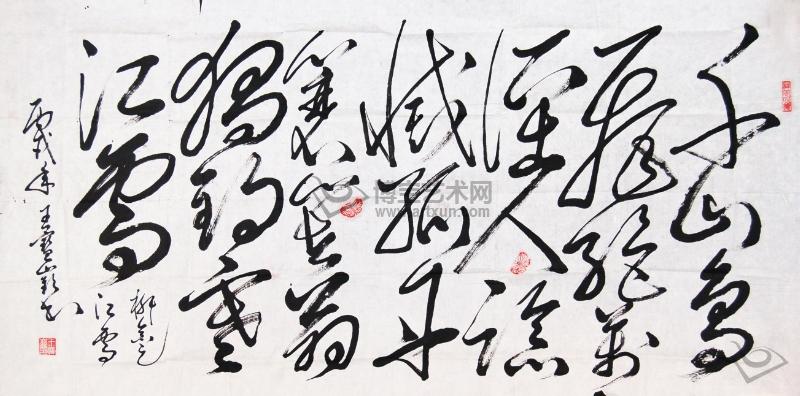 千山鳥
飛絕萬
徑人蹤
滅孤舟
蓑笠翁
獨釣寒
江雪
柳宗元
江雪
丙戌年王
博宝艺术网
artxun.com